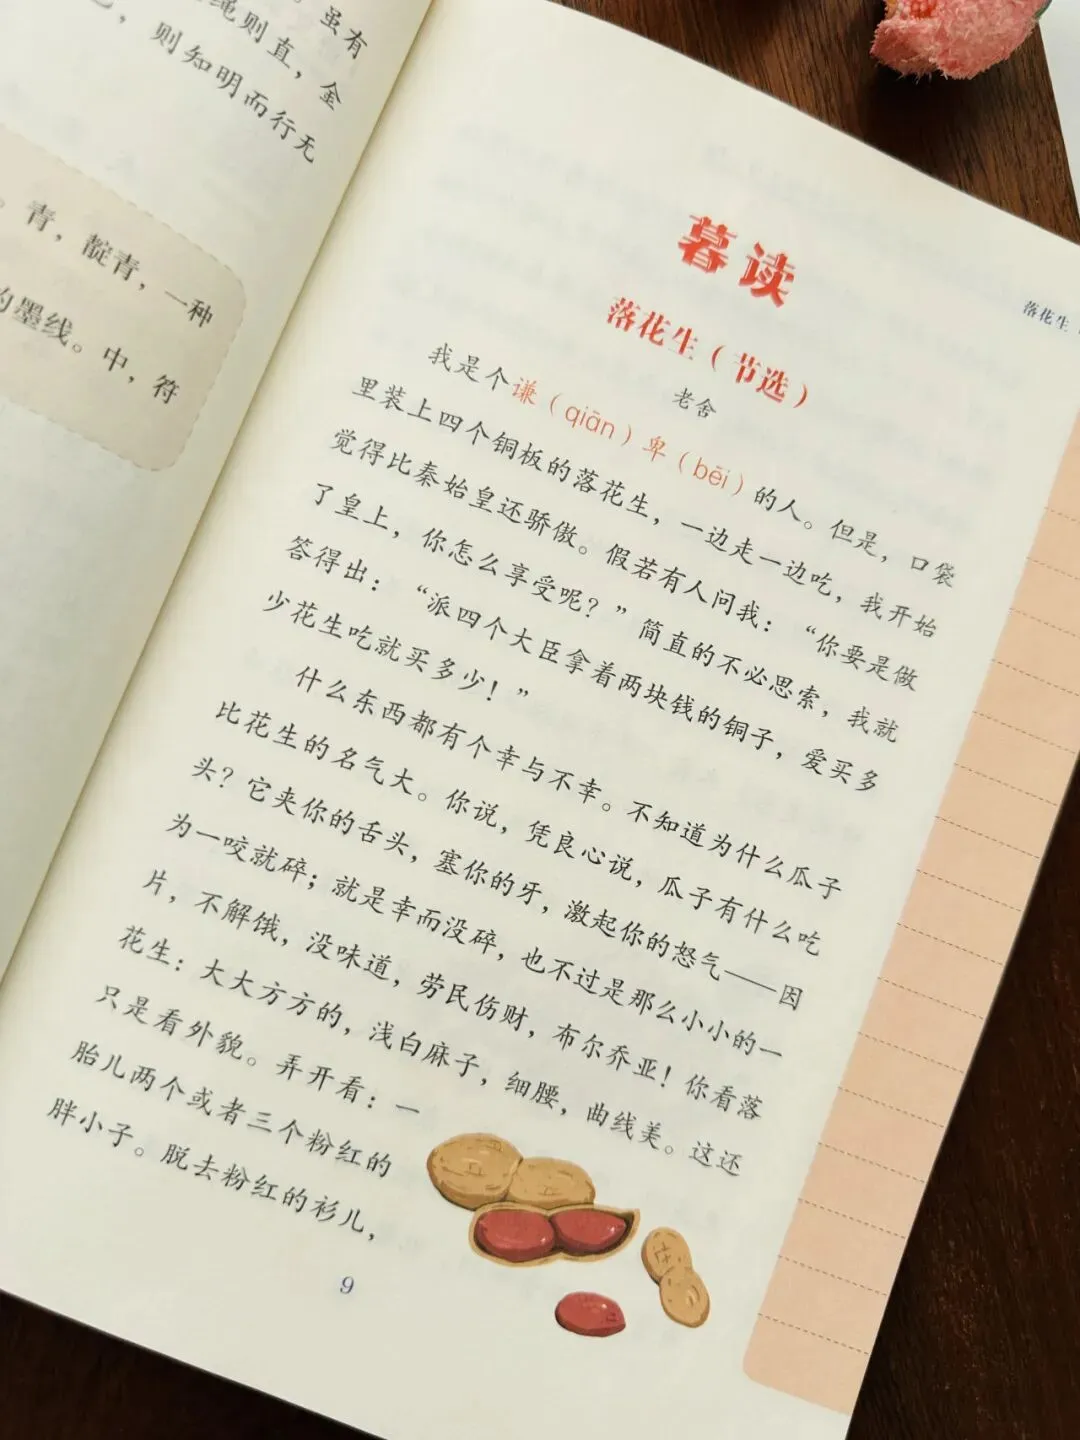 虽有
绳则直，金
，则知明而行无
青，靛青，一种
的墨线。中，符
落花生
暮读
落花生（节选）
老舍
我是个谦（qiān）卑（bēi）的人。但是，口袋
里装上四个铜板的落花生，一边走一边吃，我开始
觉得比秦始皇还骄傲。假若有人问我：“你要是做
了皇上，你怎么享受呢？”简直的不必思索，我就
答得出：“派四个大臣拿着两块钱的铜子，爱买多
少花生吃就买多少！”
什么东西都有个幸与不幸。不知道为什么瓜子
比花生的名气大。你说，凭良心说，瓜子有什么吃
头？它夹你的舌头，塞你的牙，激起你的怒气——因
为一咬就碎；就是幸而没碎，也不过是那么小小的一
片，不解饿，没味道，劳民伤财，布尔乔亚！你看落
花生：大大方方的，浅白麻子，细腰，曲线美。这还
只是看外貌。弄开看：一
胎儿两个或者三个粉红的
胖小子。脱去粉红的衫儿，
9